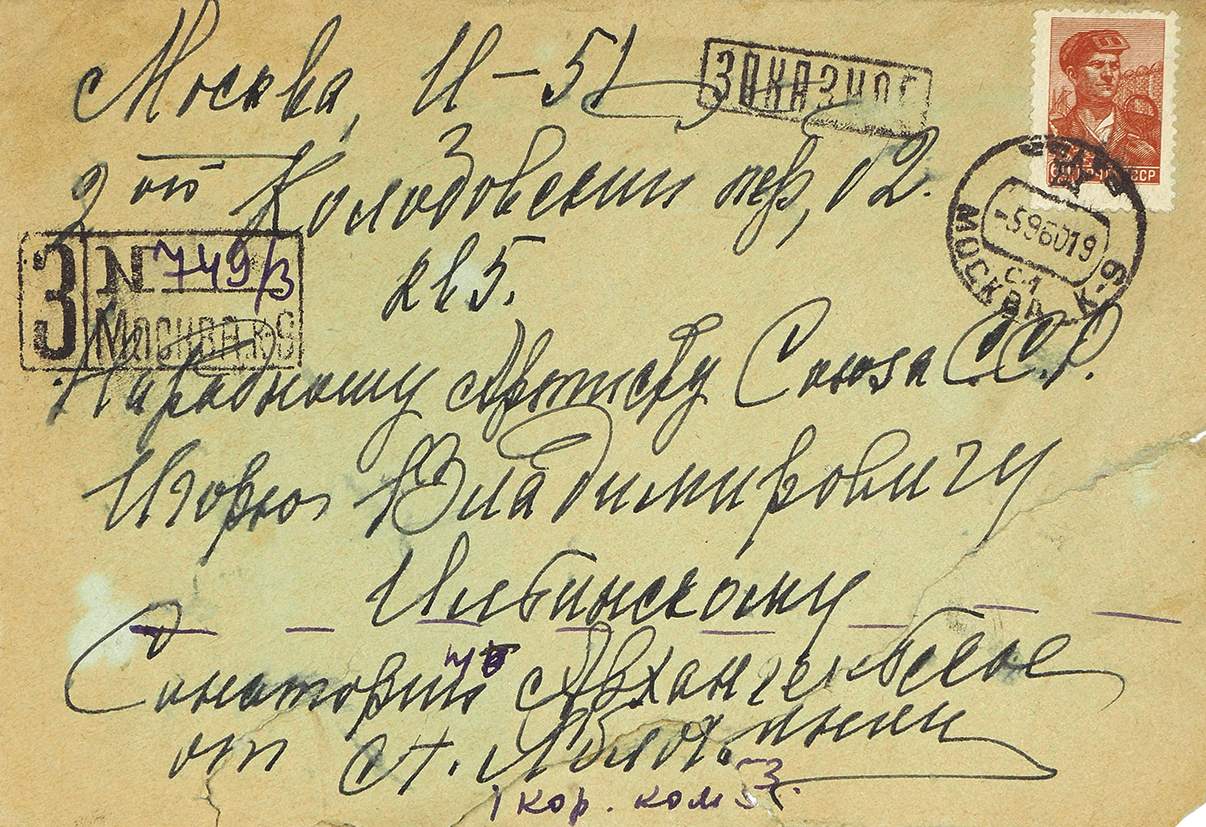 Москва, И-51
ЗАКАЗНОЕ
2ой Колобовский пер, 12.
кв 5.
З N 749/3
Москва.К-9
Народному Артисту Союза ССР.
Игорю Владимировичу
Ильинскому
Санаторий Архангельское
от ст.
1 кор. ком 57.
СССР
-596019
МОСКВА К-9